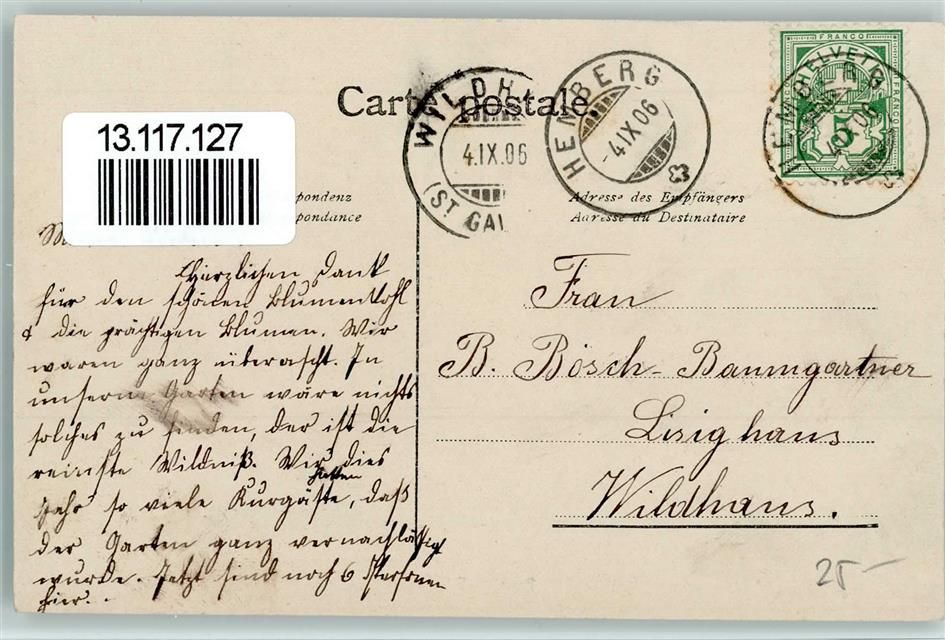 Carte postale
13.117.127
WILDH
4.IX.06
(ST. GAL
HEMBERG
-4.IX.06
FRANCO
HELVETIA
FRANCO
5
HEMBERG
pondenz
pondance
Adresse des Empfängers
Adresse du Destinataire
Herzlichen Dank
für den schönen Blumenkohl
& die prächtigen Blumen. Wir
waren ganz überascht. In
unserm Garten wäre nichts
solches zu finden, der ist die
reinste Wildniß. Wir dies
hatten
Jahr so viele Kurgäste, daß
der Garten ganz vernachläßigt
wurde. Jetzt sind noch 6 Personen
hier.
Frau
B. Bösch-Baumgartner
Lisighaus
Wildhaus.
25-